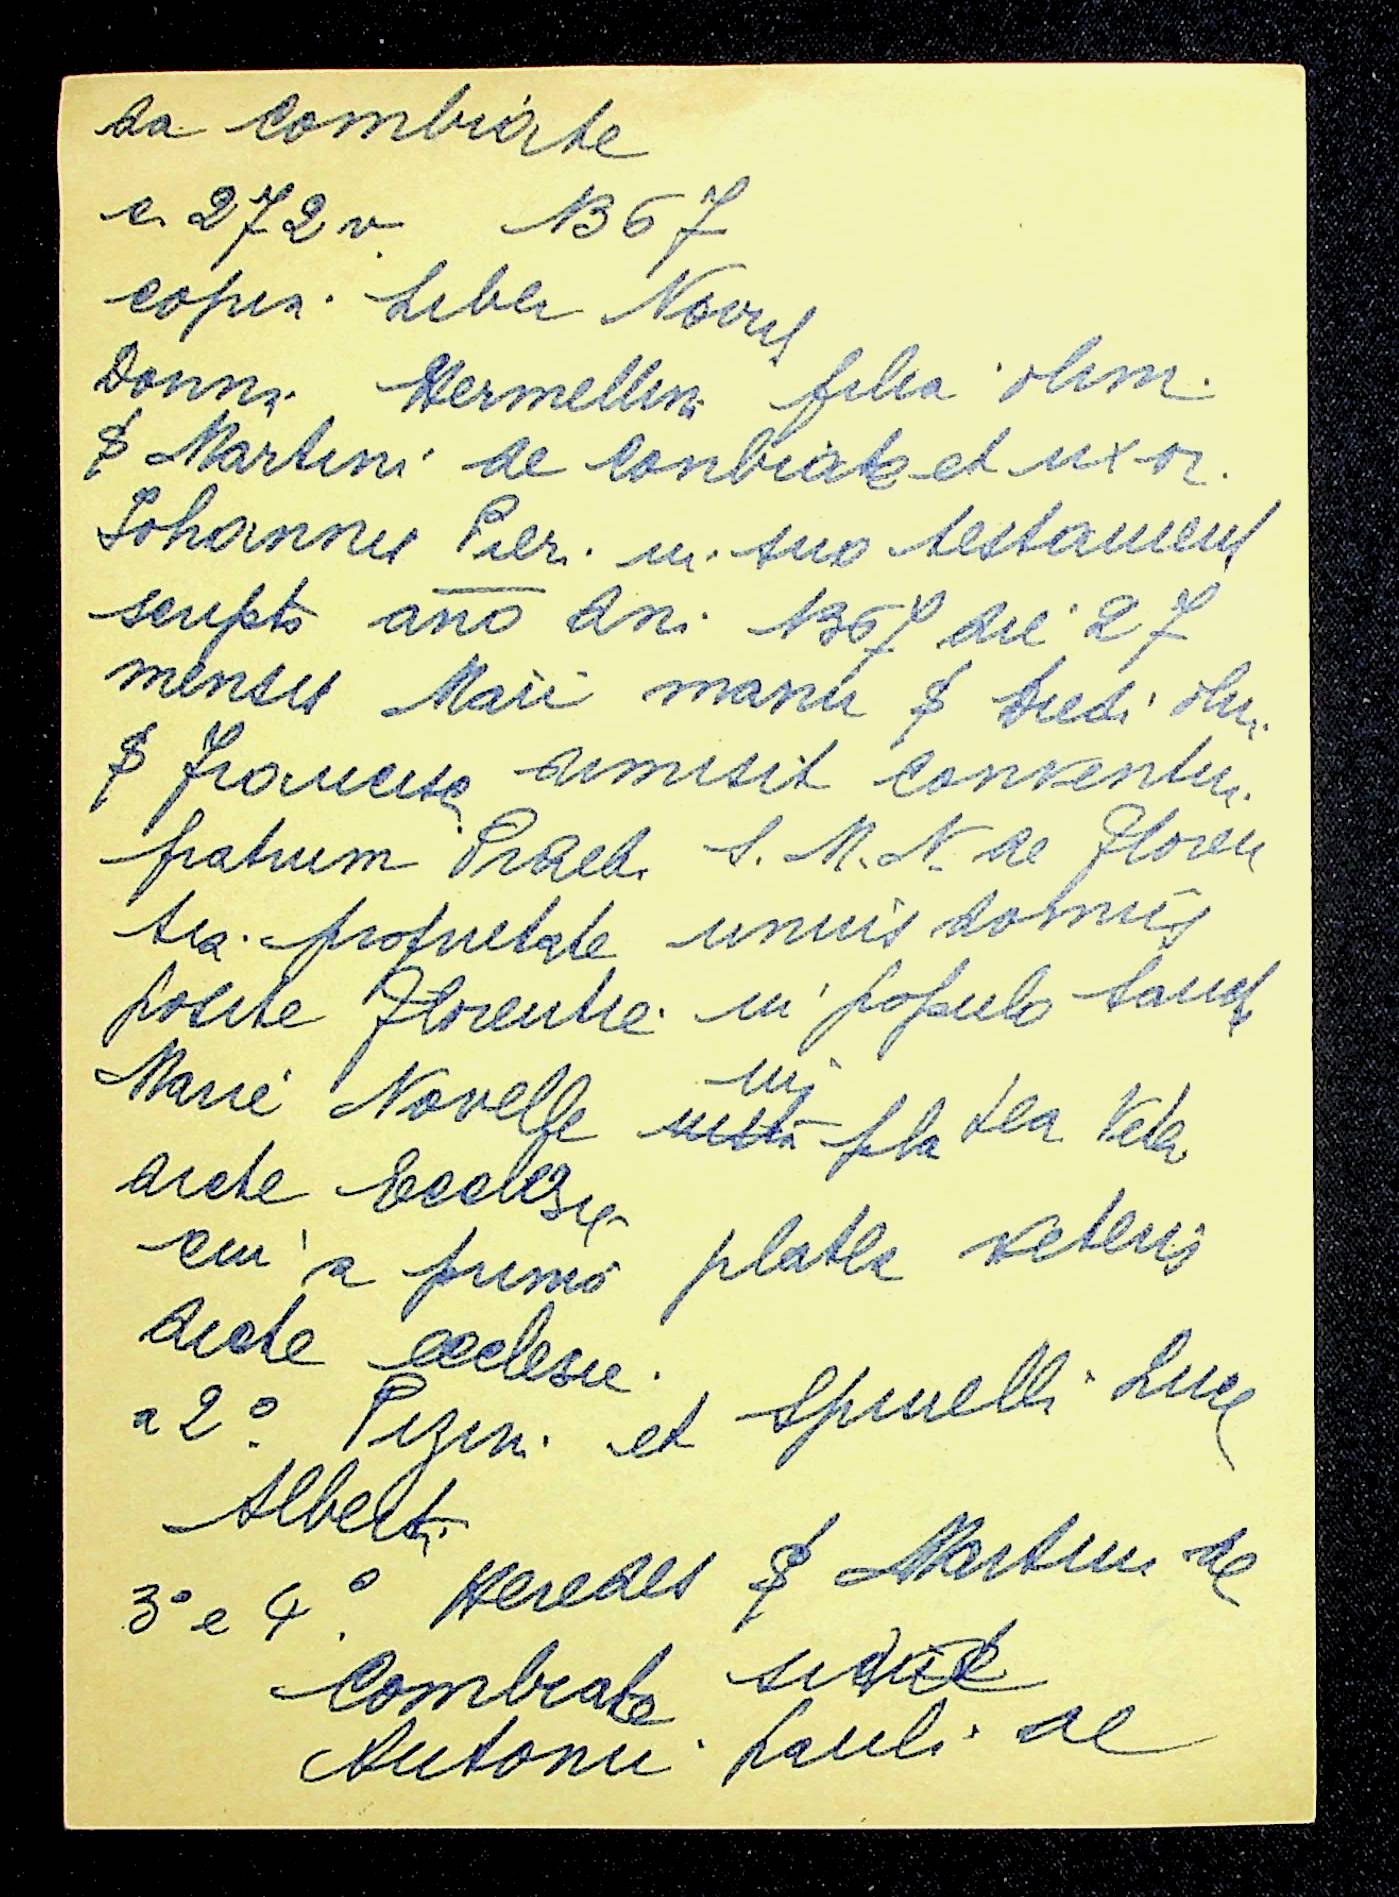 da Combiate
c. 272 v. 1367
copia. Liber Novus
Donna Hermellina filia olim.
$ Martini de Conbiate et uxor.
Johannis Pieri in suo testament
scripto año dni 1367 die 27
mensis Maii manu $ Diedi olim
$ Francisci dimisit conventui
fratrum Praed. S. M. N. de Floren
tia proprietate unius domus
posite Florentie in populo Sancte
Marie Novelle iusta in pla tea Veter
dicte Ecclesie
cui a primo platea veteris
dicte ecclesie.
a 2º. Pizini et Spinelli Luce
Alberti
3º e 4º. Heredes $ Martini de
Combiate
Antonii Pauli de